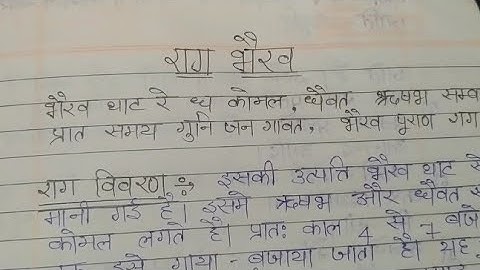 राग भैरव
भैरव थाट रे ध कोमल, धैवत ऋषभ सम्व
प्रात समय गुनि जन गावत, भैरव पूराण राग
राग विवरण :- इसकी उत्पत्ति भैरव थाट से
मानी गई है। इसमें ऋषभ और धैवत स
कोमल लगते है। प्रातः काल 4 से 7 बजे
इसे गाया - बजाया जाता है। यह